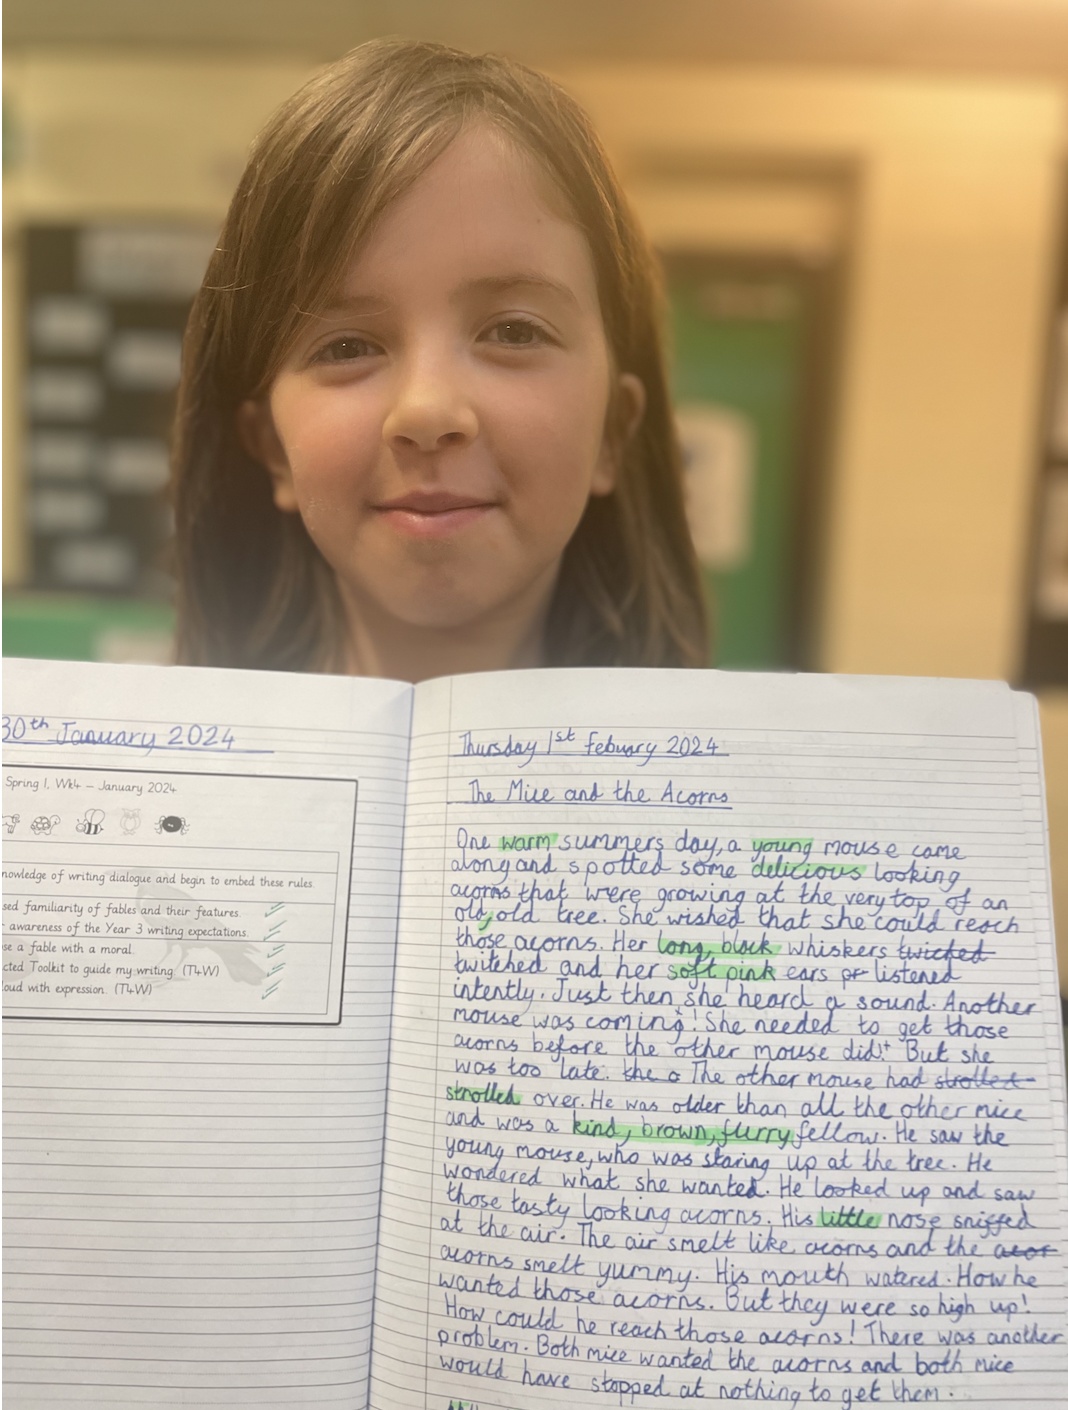 30th January 2024
Spring 1, Wk4 – January 2024
nowledge of writing dialogue and begin to embed these rules.
sed familiarity of fables and their features.
awareness of the Year 3 writing expectations.
se a fable with a moral.
cted Toolkit to guide my writing. (T4W)
loud with expression. (T4W)
Thursday 1st Febuary 2024
The Mice and the Acorns
One warm summers day, a young mouse came
along and spotted some delicious looking
acorns that were growing at the very top of an
old, old tree. She wished that she could reach
those acorns. Her long, black whiskers twicked
twitched and her soft pink ears pr listened
intently. Just then she heard a sound. Another
mouse was coming! She needed to get those
acorns before the other mouse did! But she
was too late. the o The other mouse had strolled
strolled over. He was older than all the other mice
and was a kind, brown, flurry fellow. He saw the
young mouse, who was staring up at the tree. He
wondered what she wanted. He looked up and saw
those tasty looking acorns. His little nose sniffed
at the air. The air smelt like acorns and the acor
acorns smelt yummy. His mouth watered. How he
wanted those acorns. But they were so high up!
How could he reach those acorns! There was another
problem. Both mice wanted the acorns and both mice
would have stopped at nothing to get them.